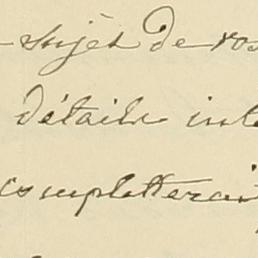 sujet de vos
détails inté
complèterait